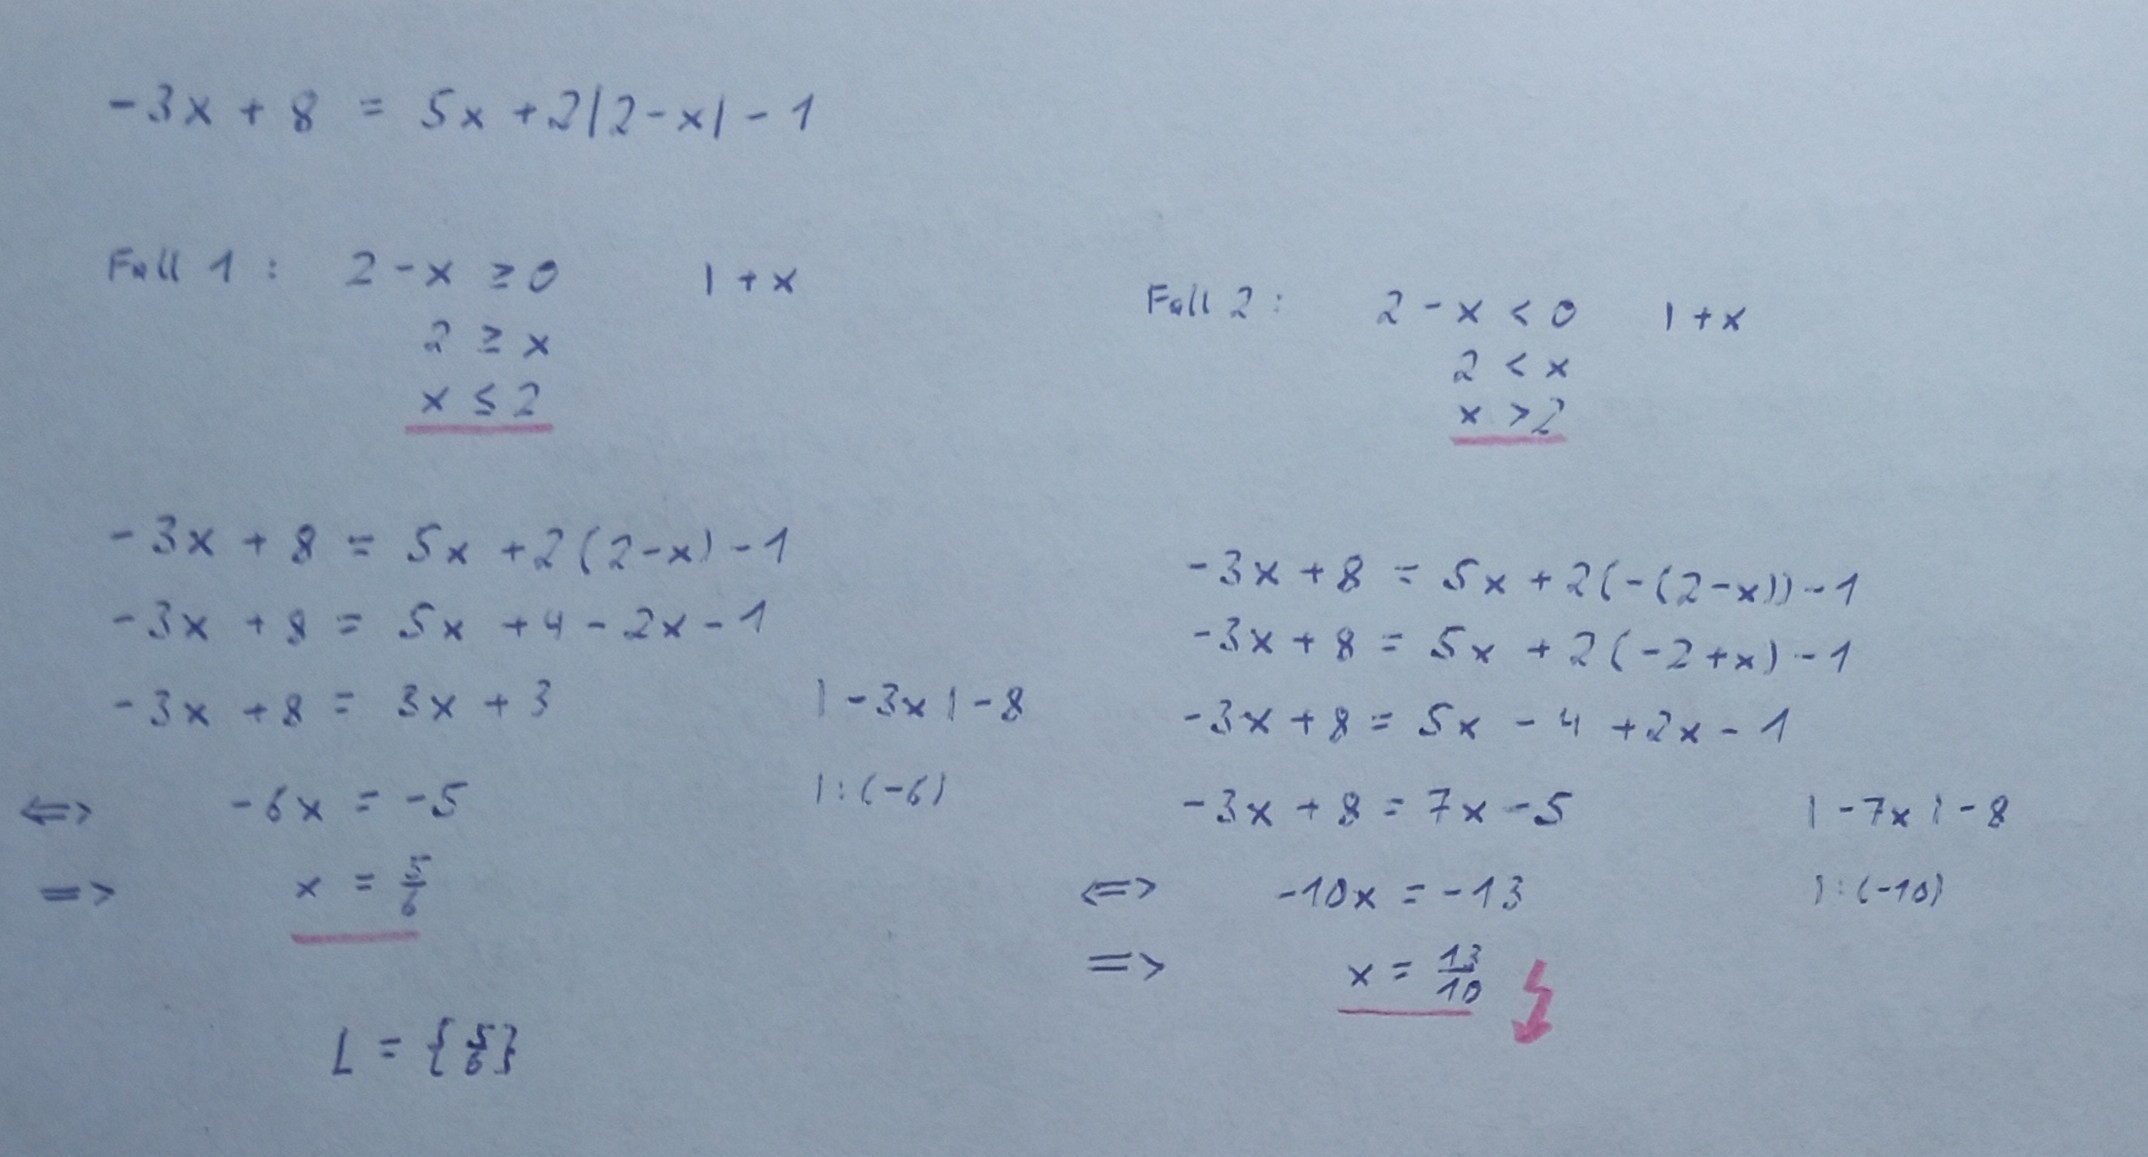 -3x + 8 = 5x + 2|2-x| - 1
Fall 1: 2 - x ≥ 0 | + x
2 ≥ x
x ≤ 2
-3x + 8 = 5x + 2(2-x) - 1
-3x + 8 = 5x + 4 - 2x - 1
-3x + 8 = 3x + 3 | - 3x | - 8
<=> -6x = -5 | : (-6)
=> x = 5/6
L = {5/6}
Fall 2: 2 - x < 0 | + x
2 < x
x > 2
-3x + 8 = 5x + 2(-(2-x)) - 1
-3x + 8 = 5x + 2(-2+x) - 1
-3x + 8 = 5x - 4 + 2x - 1
-3x + 8 = 7x - 5 | - 7x | - 8
<=> -10x = -13 | : (-10)
=> x = 13/10 ↯